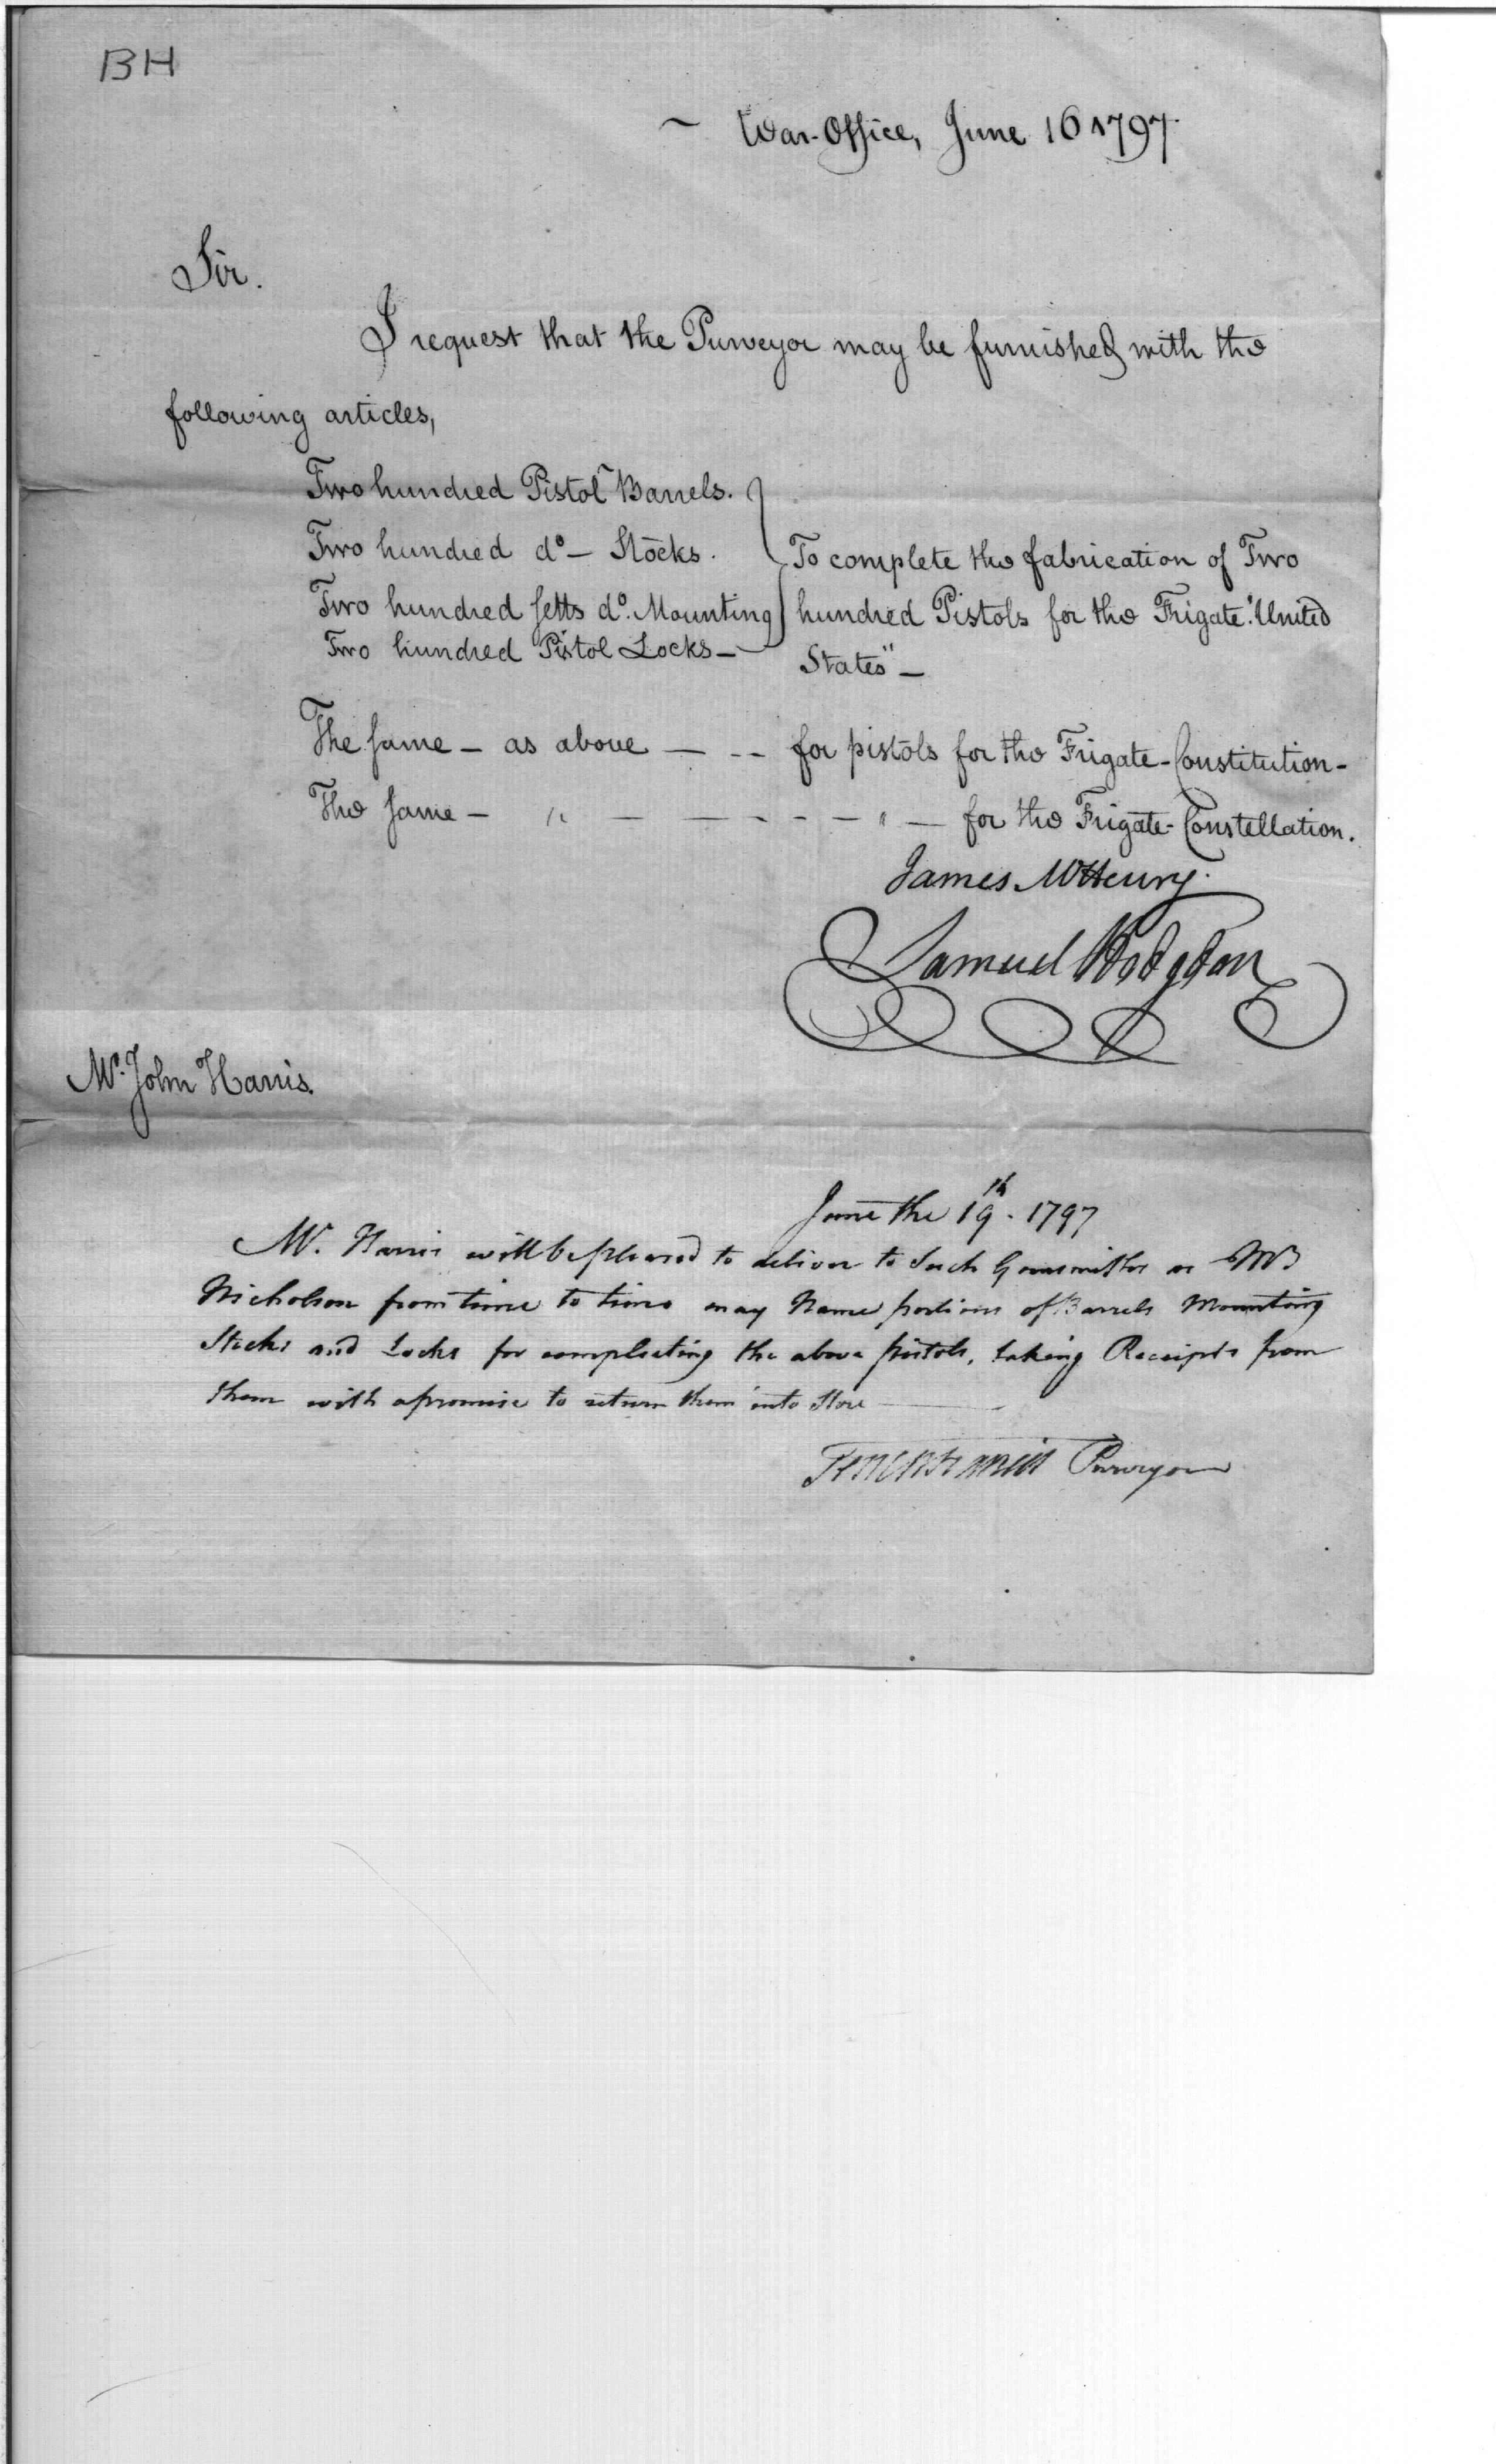 BH
War-Office, June 16 1797.
Sir.
I request that the Purveyor may be furnished with the
following articles,
Two hundred Pistol Barrels.
Two hundred do - Stocks.
Two hundred setts do. Mounting
Two hundred Pistol Locks -
To complete the fabrication of Two
hundred Pistols for the Frigate "United
States" -
The same - as above - - - for pistols for the Frigate - Constitution -
The same - " - - - - - - " - for the Frigate - Constellation.
James McHenry.
Samuel Hodgdon
Mr. John Harris.
June the 19th. 1797
Mr. Harris will be pleased to deliver to such Gunsmiths as Mr
Nicholson from time to time may Name portions of Barrels Mounting
Stocks and Locks for compleating the above pistols, taking Receipts from
them with a promise to return them into Store
Purveyor